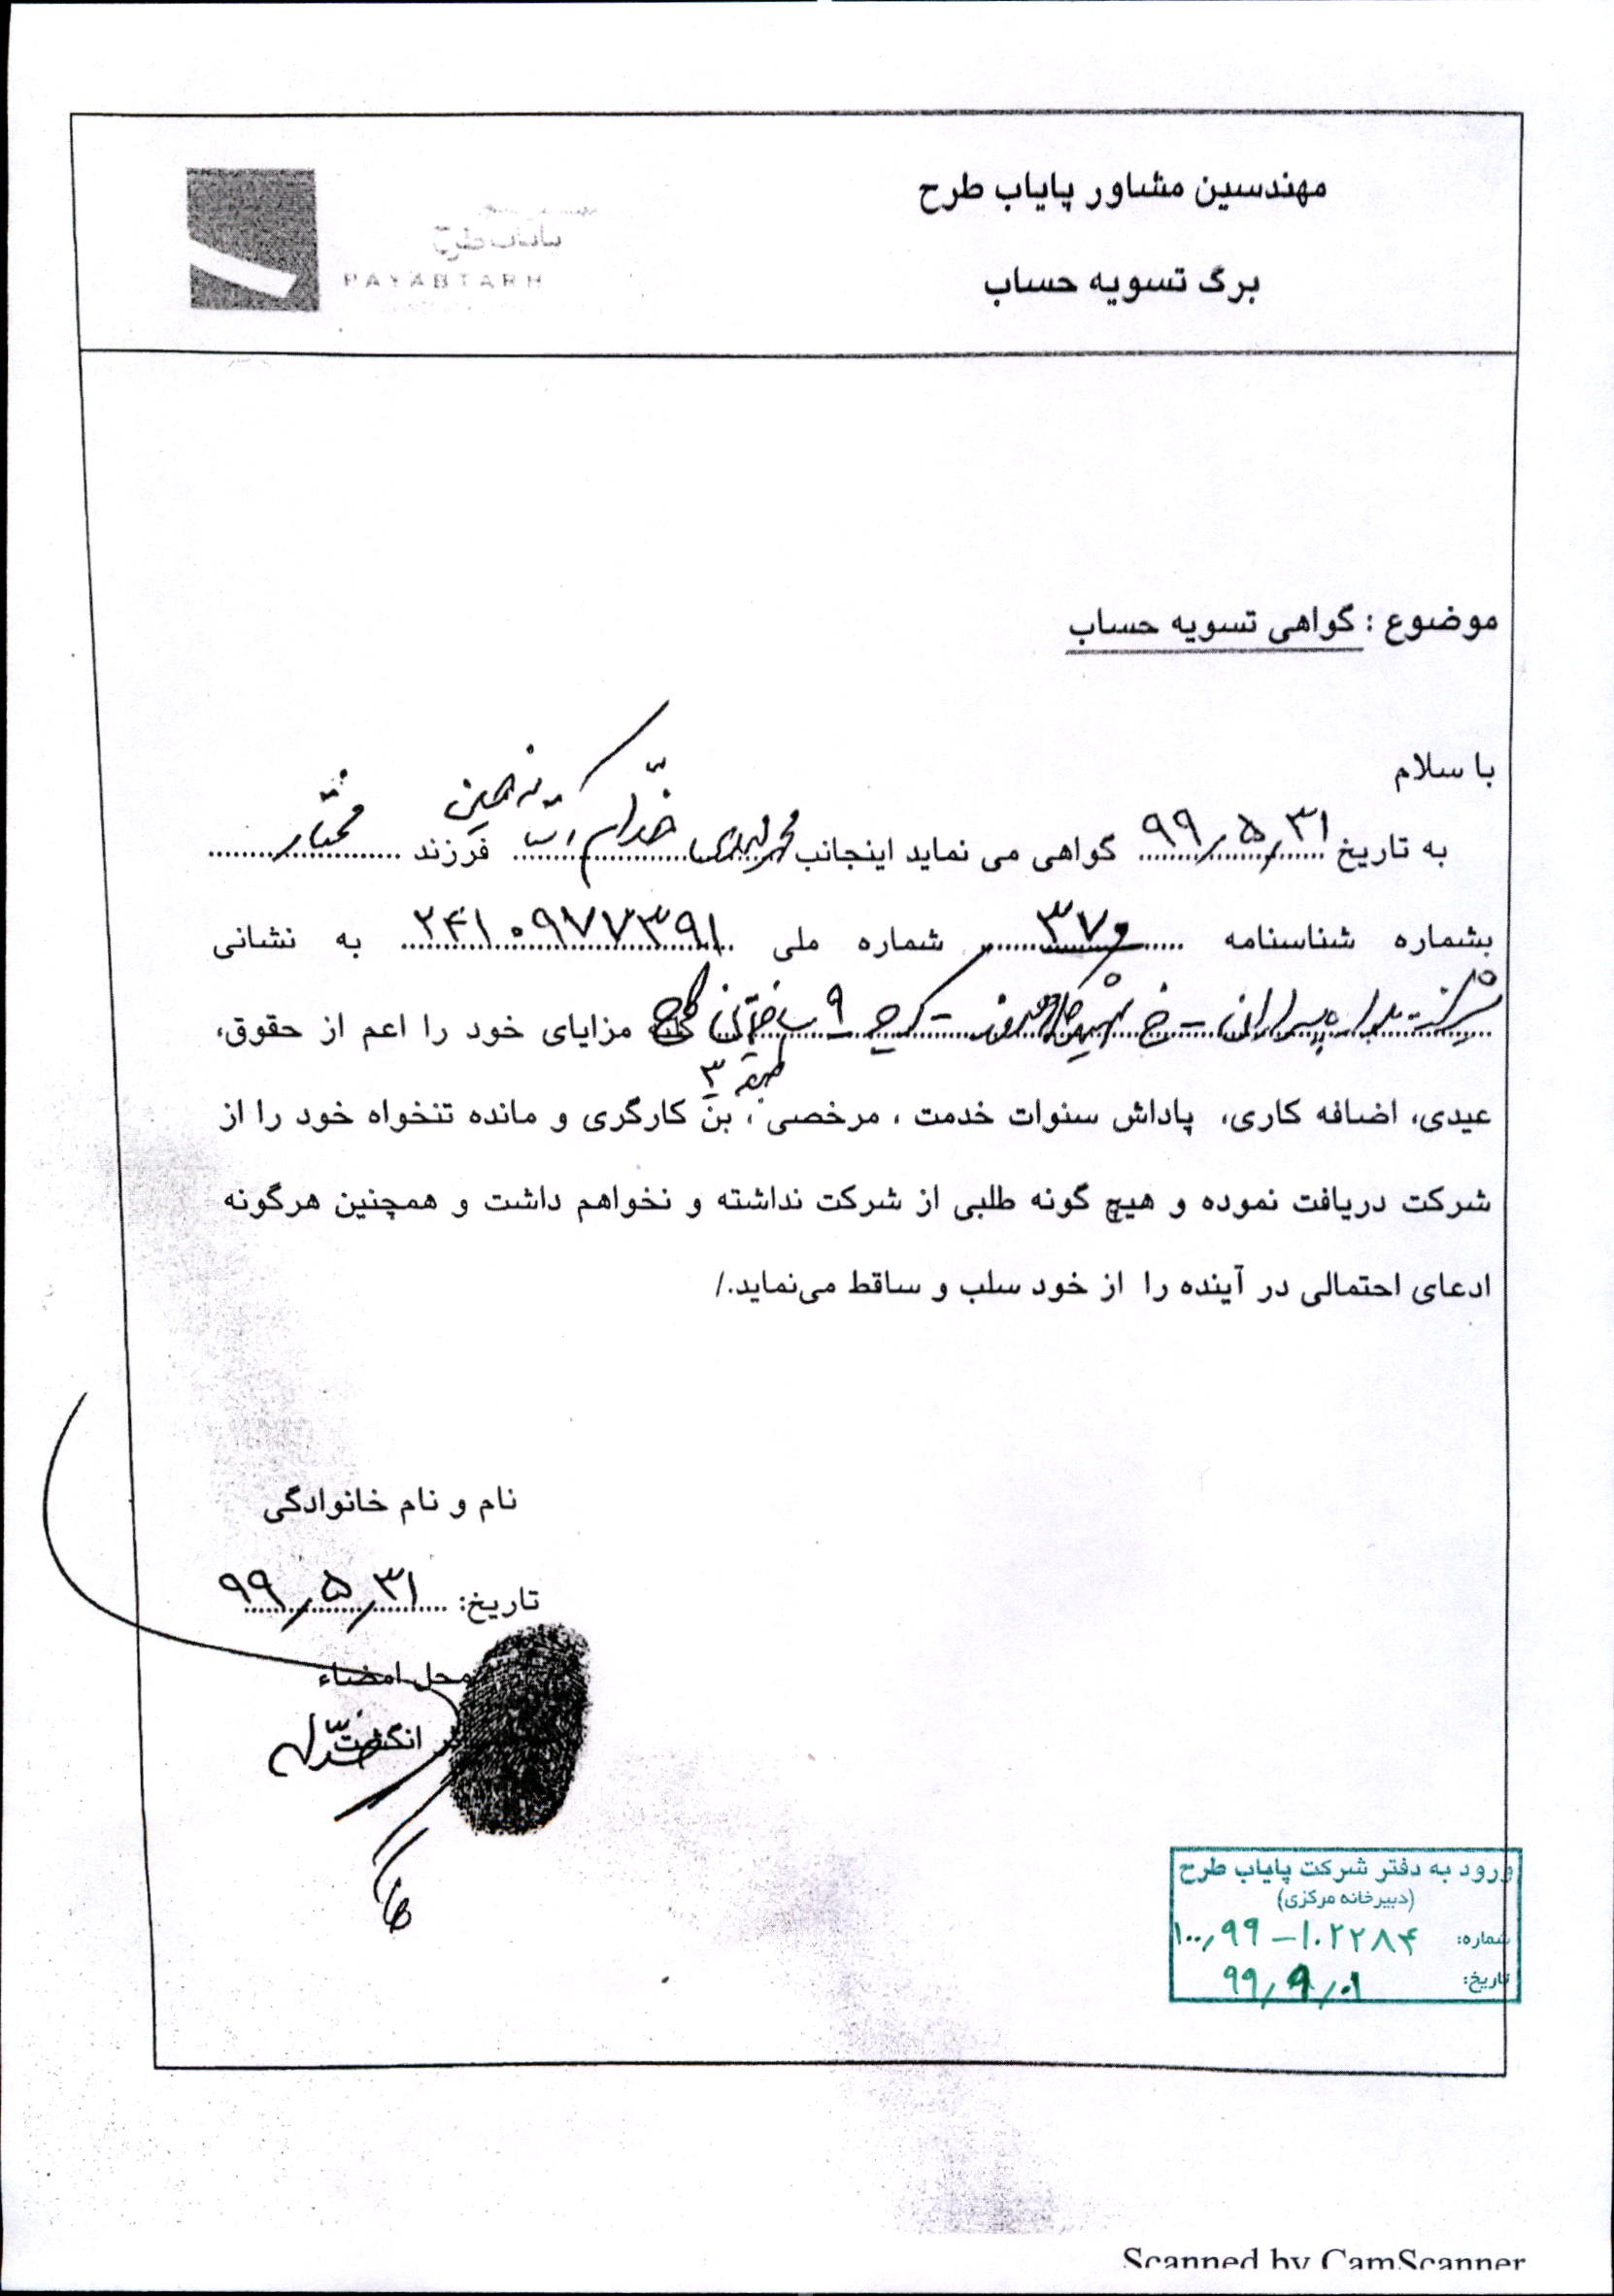 مهندسین مشاور پایاب طرح
برگ تسویه حساب
پایاب طرح
PAYABTARH
موضوع : گواهی تسویه حساب
با سلام
به تاریخ ۹۹/۵/۳۱ گواهی می نماید اینجانب محمد مهدی خدام فرزند
بشماره شناسنامه ۳۷۰ شماره ملی ۲۴۱۰۹۷۷۳۹۱ به نشانی
شرکت - خ - ک ۹ مزایای خود را اعم از حقوق،
طبقه ۳
عیدی، اضافه کاری، پاداش سنوات خدمت ، مرخصی ، بن کارگری و مانده تنخواه خود را از
شرکت دریافت نموده و هیچ گونه طلبی از شرکت نداشته و نخواهم داشت و همچنین هرگونه
ادعای احتمالی در آینده را از خود سلب و ساقط می‌نماید./
نام و نام خانوادگی
تاریخ: ۹۹/۵/۳۱
محل امضاء
اثر انگشت
ورود به دفتر شرکت پایاب طرح
(دبیرخانه مرکزی)
شماره: ۱۰۰/۹۹-۱۰۲۲۸۴
تاریخ: ۹۹/۹/۰۱
Scanned by CamScanner